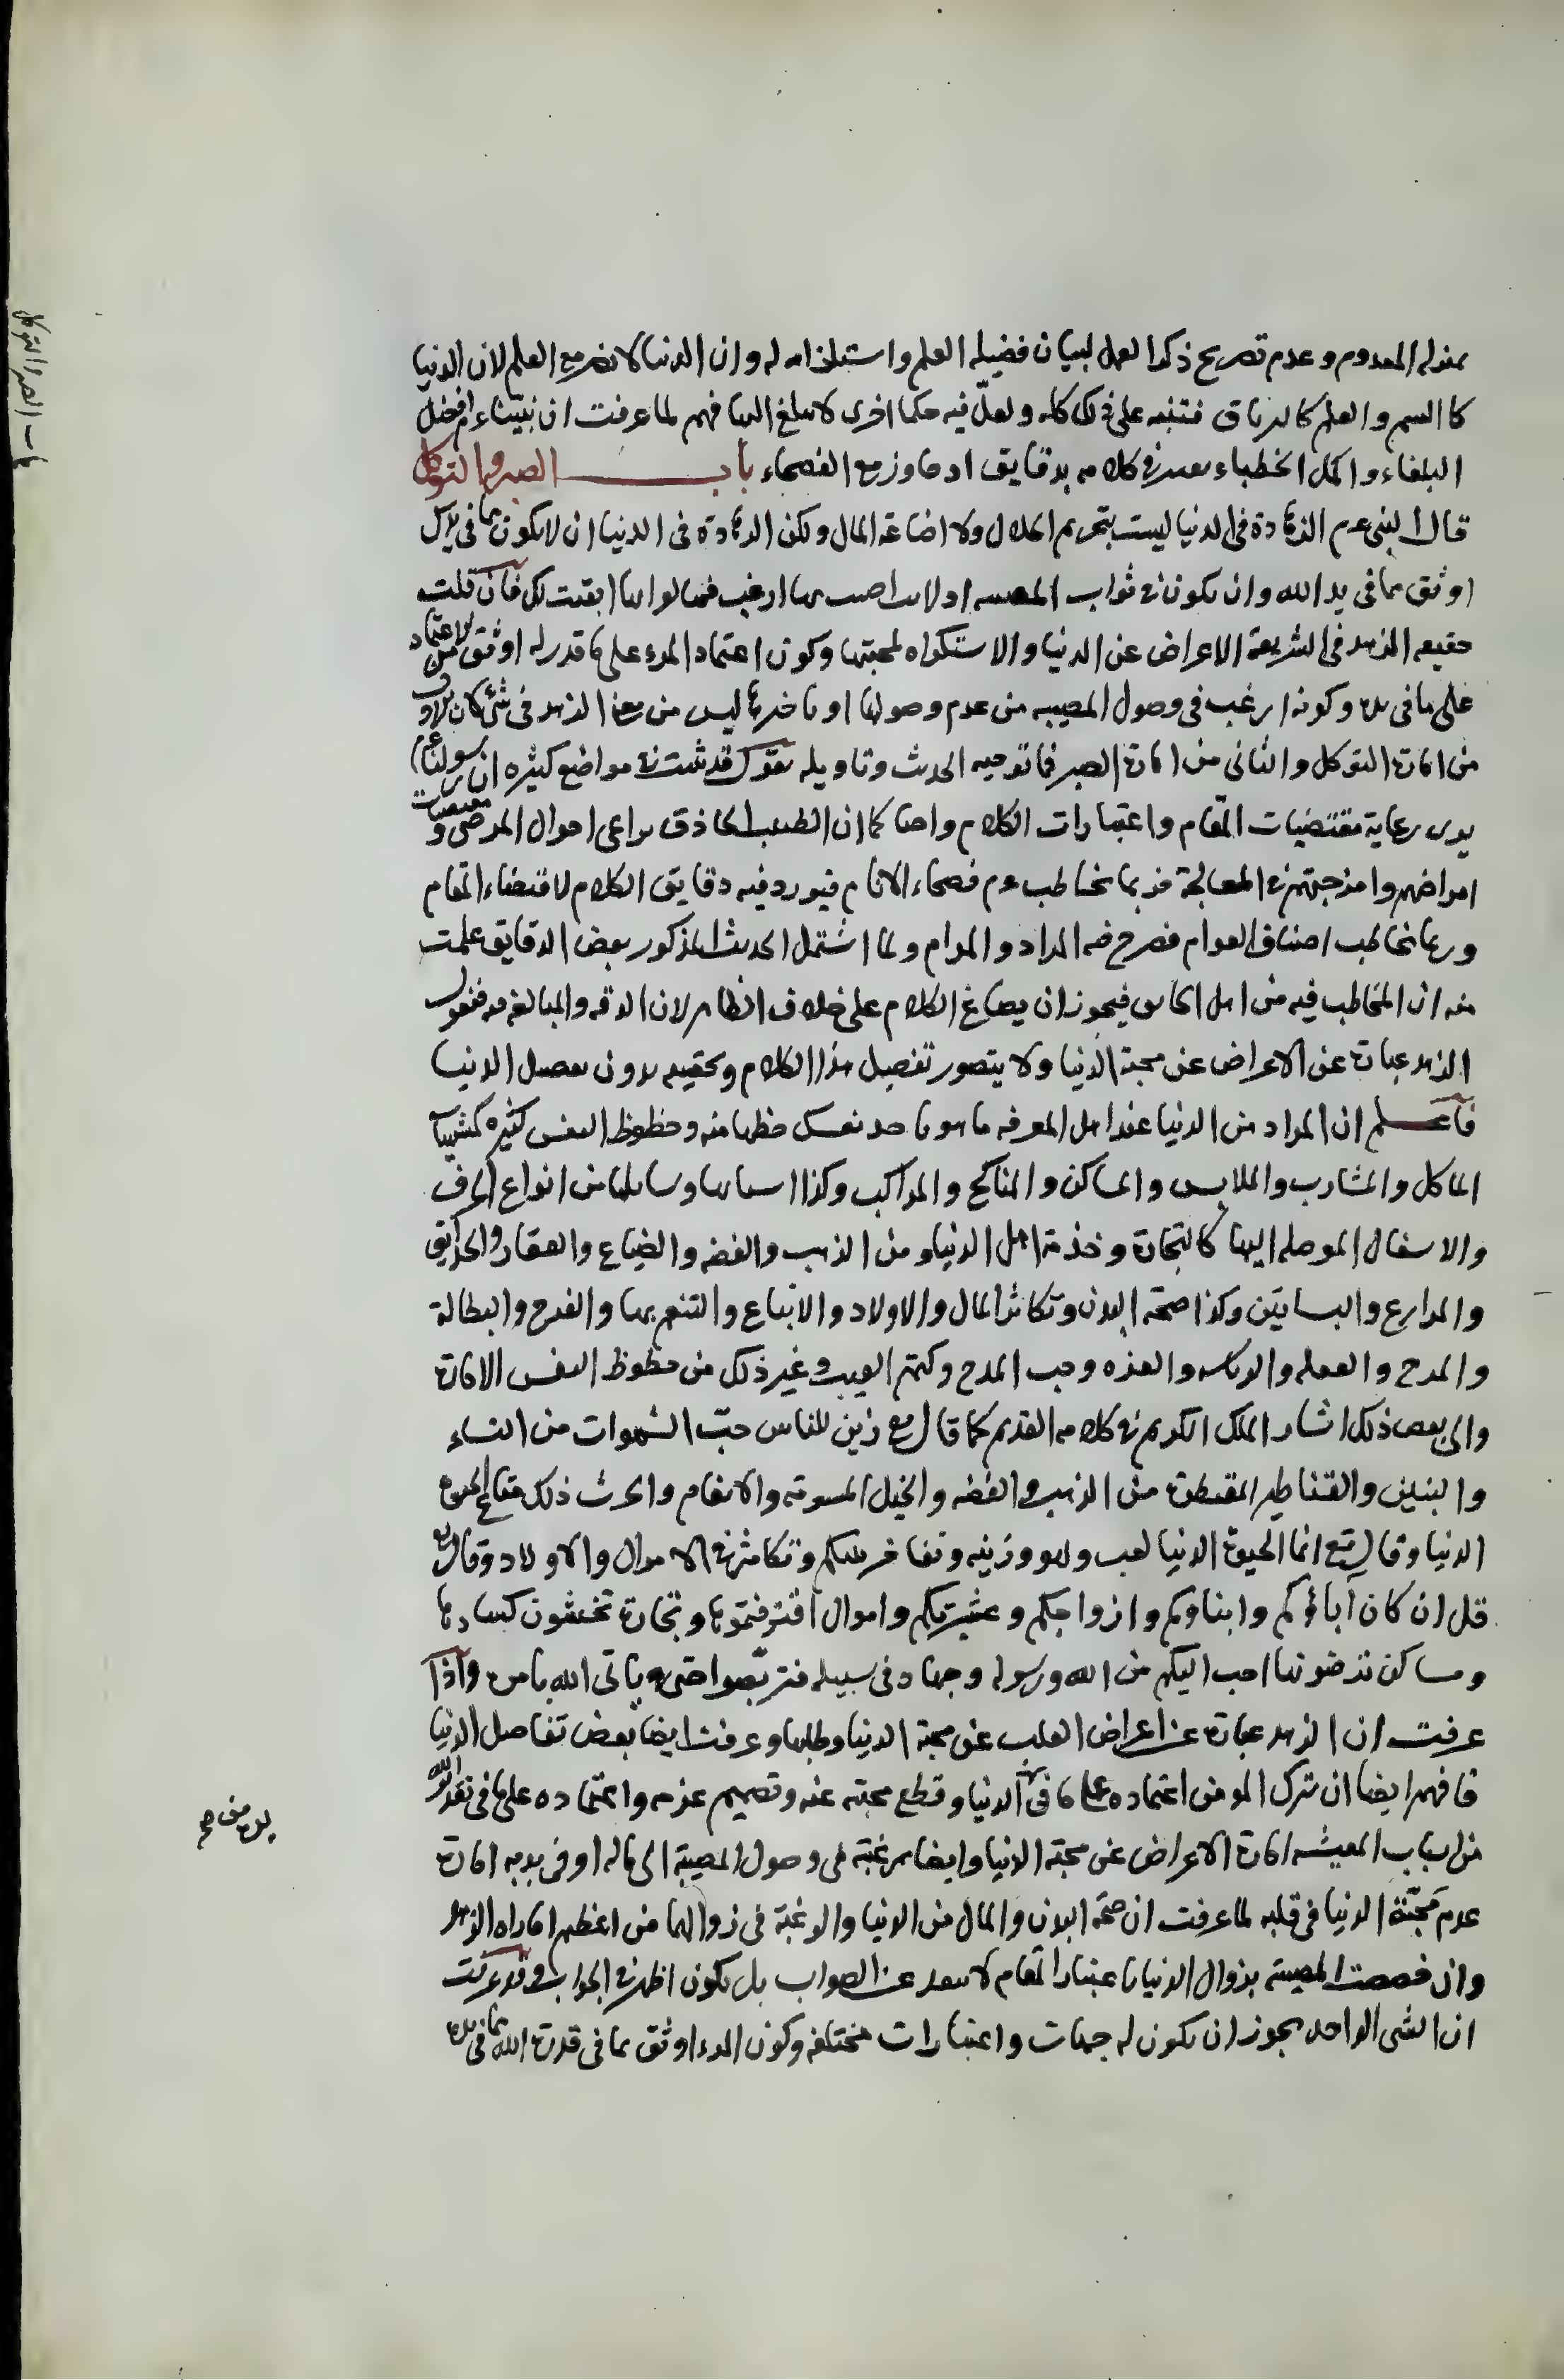 بمنزلة المعدوم وعدم تصريح ذكر العمل لبيان فضيلة العلم واستلزامه له وان الدنيا لا تضر مع العلم لان الدنيا
كالسم والعلم كالترياق فتنبه على ذلك كله ولعل فيه حكما اخرى لا يبلغ اليها فهم لما عرفت ان نبينا عم افضل
البلغاء واكمل الخطباء في كلامه بدقايق مع الفصحاء باب الصبر والتوكل
قال النبي عم الزهادة في الدنيا ليست بتحريم الحلال ولا اضاعة المال ولكن الزهادة في الدنيا ان لا يكون بما في يديك
اوثق مما في يد الله وان يكون في ثواب المصيبة اذا انت اصبت بها ارغب فيها لو انها ابقيت لك فان قلت
حقيقة الزهد في الشريعة الاعراض عن الدنيا والاستكراه لمحبتها وكون اعتماد المرء على ما قدر له اوثق من الاعتماد
على ما في يده وكونه ارغب في وصول المصيبة من عدم وصولها او تاخيرها ليس من معنى الزهد في شئ كان الاول
من امارة التوكل والثاني من امارة الصبر فما توجيه الحديث وتاويله نقول قد ثبت في مواضع كثيرة ان رسولنا عم
يرى رعاية مقتضيات المقام واعتبارات الكلام واجبا كما ان الطبيب الحاذق يراعي احوال المرضى و مقتضيات
امراضهم وامزجتهم في المعالجة فربما يخاطب عم فصحاء الانام فيورد فيه دقايق الكلام لاقتضاء المقام
وربما يخاطب اصناف العوام فصرح فيه المراد والمرام ولما اشتمل الحديث المذكور بعض الدقايق علمت
منه ان المخاطب فيه من اهل الخاص فيجوز ان يصاغ الكلام على خلاف الظاهر لان الدقة والمبالغة فيه فنقول
الزهد عبارة عن الاعراض عن محبة الدنيا ولا يتصور تفصيل هذا الكلام وتحقيقه بدون تفصيل الدنيا
فاعلم ان المراد من الدنيا عند اهل المعرفة ما هو ياخذ نفسك حظها منه وحظوظ النفس كثيرة كمشتهيات
الماكل والمشارب والملابس والمساكن والمناكح والمراكب وكذا اسبابها وسايلها من انواع الحرف
والاشغال الموصلة اليها كالتجارة وخدمة اهل الدنيا ومن الذهب والفضة والضياع والعقار والحدايق
والمزارع والبساتين وكذا صحة البدن وتكاثر المال والاولاد والاتباع والتنعم بها والفرح والبطالة
والمرح والغفلة والرياسة والعزة وحب المدح وكتم العيب وغير ذلك من حظوظ النفس الامارة
والى بعض ذلك اشار الملك الكريم في كلامه القديم كما قال تع زين للناس حب الشهوات من النساء
والبنين والقناطير المقنطرة من الذهب والفضة والخيل المسومة والانعام والحرث ذلك متاع الحيوة
الدنيا وقال تع انما الحيوة الدنيا لعب ولهو وزينة وتفاخر بينكم وتكاثر في الاموال والاولاد وقال تع
قل ان كان آباؤكم وابناؤكم وازواجكم وعشيرتكم واموال اقترفتموها وتجارة تخشون كسادها
ومساكن ترضونها احب اليكم من الله ورسوله وجهاد في سبيله فتربصوا حتى ياتي الله بامره واذا
عرفت ان الزهد عبارة عن اعراض القلب عن محبة الدنيا وطلبها وعرفت ايضا بعض تفاصيل الدنيا
فافهم ايضا ان ترك المؤمن اعتماده على ما في الدنيا وقطع محبته عنه وتصميم عزمه واعتماده على ما في تقدير الله
من اسباب المعيشة امارة الاعراض عن محبة الدنيا وايضا رغبته في وصول المصيبة الى ماله او في بدنه امارة
عدم محبة الدنيا في قلبه لما عرفت ان صحة البدن والمال من الدنيا والرغبة في زوالهما من اعظم امارات الزهد
وان خصصت المصيبة بزوال الدنيا باعتبار المقام لا يبعد عن الصواب بل يكون اظهر في الجواب وقد عرفت
ان الشئ الواحد يجوز ان يكون له جهات واعتبارات مختلفة وكون المرء اوثق بما في قدرة الله مما في يده
يده من صح
باب الصبر والتوكل